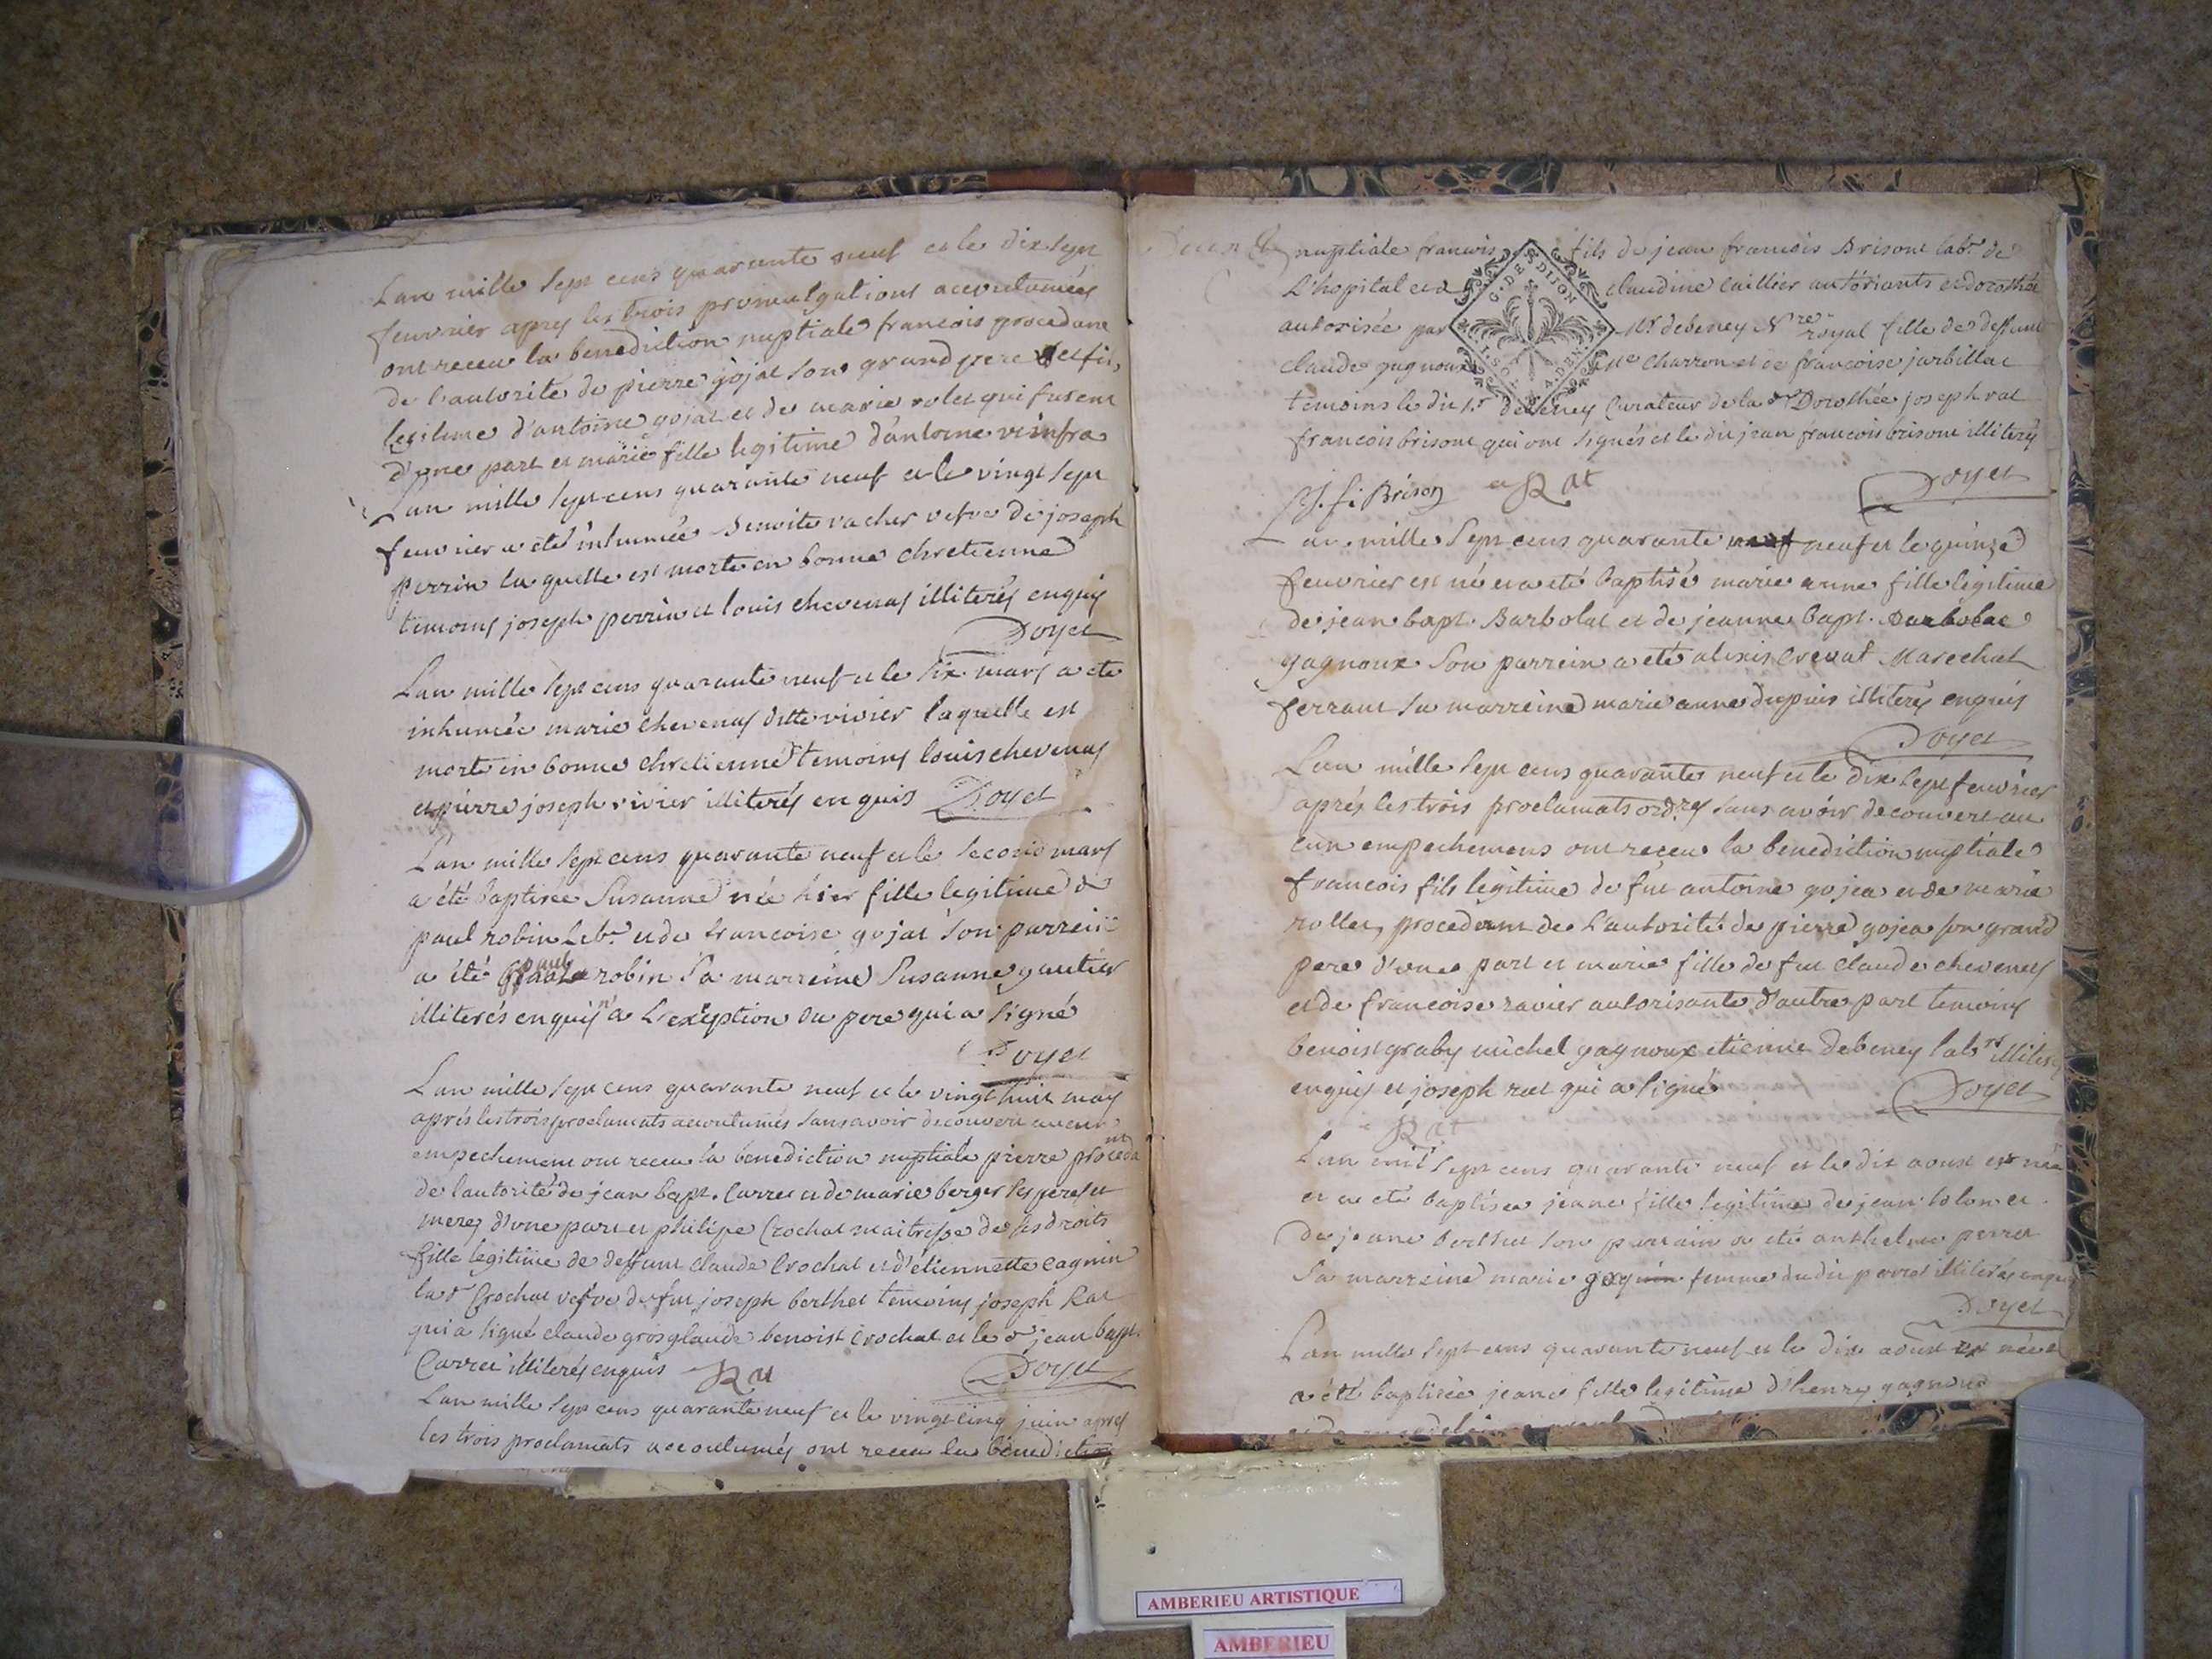 Lan mille sept cens quarante neuf et le dix sept
feuvrier apres les trois promulgations accoutumées
ont receu la benediction nuptiale francois procedant
de l'autorité de pierre gojat son grand pere et fils
legitime d'antoine gojat et de marie rolet qui furent
d'une part et marie fille legitime d'antoine ut infra
Lan mille sept cens quarante neuf et le vingt sept
feuvrier a eté inhumée benoite vacher vefve de joseph
perrin laquelle est morte en bonne chretienne
temoins joseph perrin et louis chevenas illiterés enquis
Doyet
Lan mille sept cens quarante neuf et le six mars a ete
inhumée marie chevenas ditte vivier laquelle est
morte en bonne chretienne temoins louis chevenas
et pierre joseph vivier illiterés enquis Doyet
Lan mille sept cens quarante neuf et le second mars
a été baptisée Susanne née hier fille legitime de
paul robin Labr. et de francoise gojat son parrein
a été paul robin Sa marreine Susanne gautier
illiterés enquis a L'exeption du pere qui a signé
Doyet
Lan mille sept cens quarante neuf et le vingt huit may
aprés les trois proclamats accoutumés sans avoir decouvert aucun
empechement ont receu la benediction nuptiale pierre procedant
de lautorité de jean bapt. Carret et de marie berger ses pere et
mere d'une part et philipe Crochat maitresse de ses droits
fille legitime de deffunt claude Crochat et d'étiennette cagnin
lad Crochat vefve de fut joseph berthet temoins joseph Rat
qui a signé claude grosglaude benoist Crochat et le d jean bapt.
Carret illiterés enquis Rat Doyet
Lan mille sept cens quarante neuf et le vingt cinq juin apres
les trois proclamats accoutumés ont receu la benediction
nuptiale francois fils de jean francois Brisont labr. de
L'hopital et de claudine caillier autorisants et dorothée
autorisée par Mr debeney Nre royal fille de deffunt
claude gagnoux Me Charron et de francoise jarbillat
temoins le dit Sr debeney Curateur de lad Dorothée joseph rat
francois brisont qui ont signés et le dit jean francois brisont illiterés
J. f. Brison Rat Doyet
Lan mille sept cens quarante neuf et le quinze
feuvrier est né et a eté baptisé marie anne fille legitime
de jean bapt. Barbolat et de jeanne bapt. Barbolat
gagnoux Son parrein a eté alexis crevat Marechal
ferrant sa marreine marie anne dupuis illiterés enquis
Doyet
Lan mille sept cens quarante neuf et le dix sept feuvrier
aprés les trois proclamats ordres sans avoir decouvert au
cun empechemens ont receu la benediction nuptiale
francois fils legitime de fut antoine gojea et de marie
rollet, procedent de L'autorité de pierre gojea son grand
pere d'une part et marie fille de fut claude chevenas
et de francoise ravier autorisante d'autre part temoins
benoist graby michel gagnoux etienne debeney labrs illiterés
enquis et joseph rat qui a signé Doyet
Rat
Lan mil sept cens quarante neuf et le dix aoust est née
et a eté baptisée jeane fille legitime de jean tolom et
de jeane berthet son parrain a eté anthelme perret
sa marreine marie femme dudit perret illiterés enquis
Doyet
Lan mille sept cens quarante neuf et le dix aoust est née et
a été baptisée jeane fille legitime d'henry gagnoud